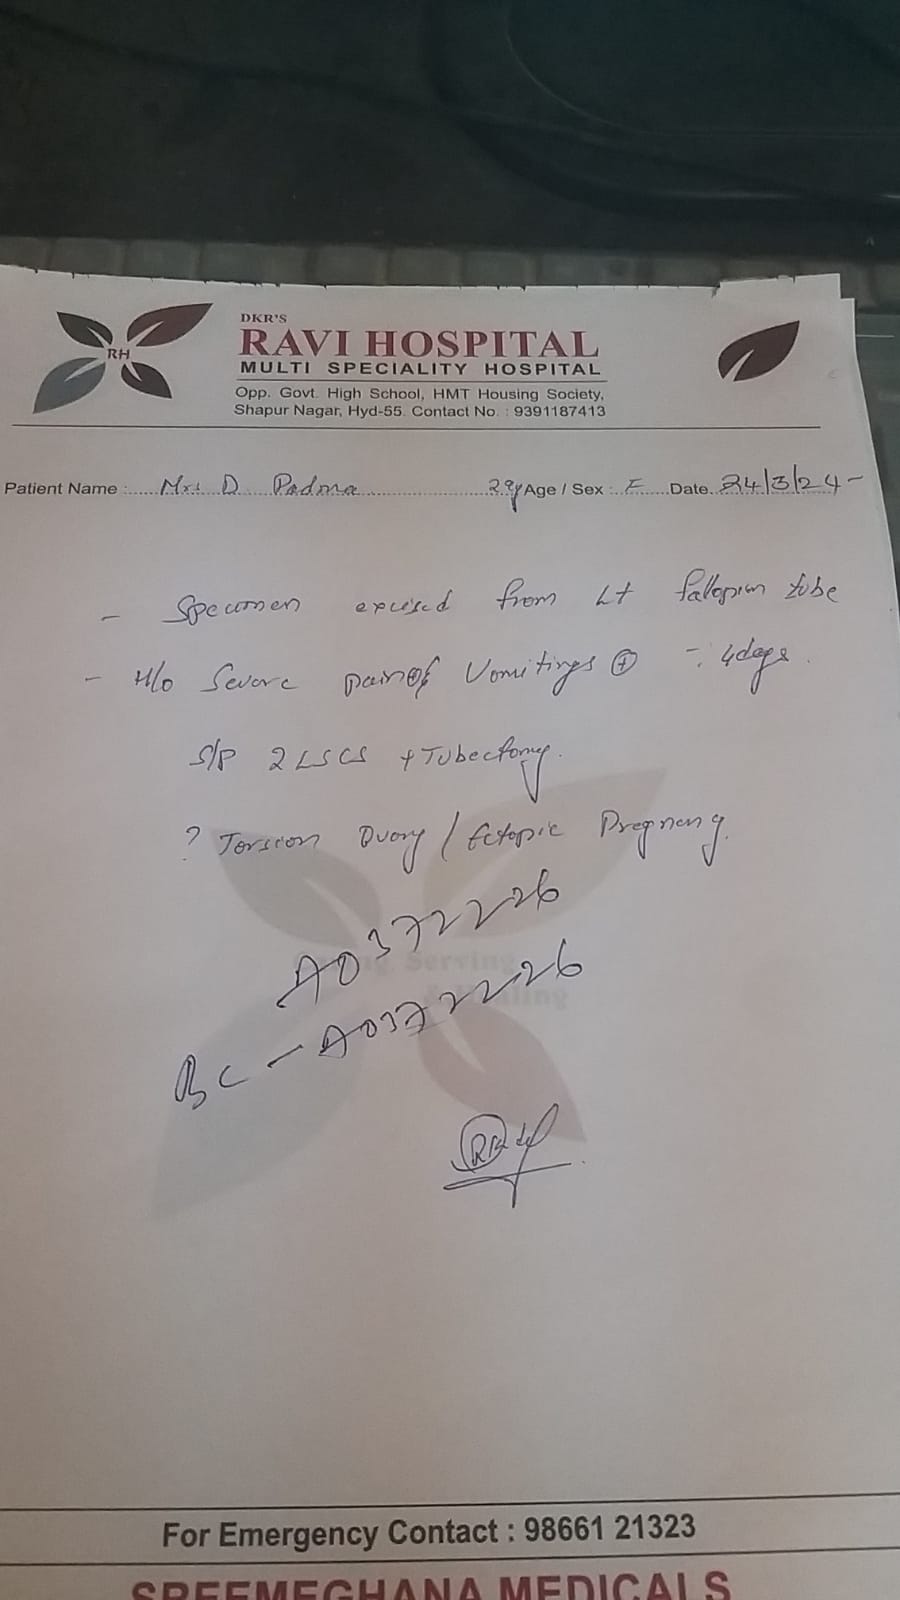 RH
DKR'S
RAVI HOSPITAL
MULTI SPECIALITY HOSPITAL
Opp. Govt. High School, HMT Housing Society,
Shapur Nagar, Hyd-55. Contact No. : 9391187413
Patient Name : Mrs D Padma 29y Age / Sex : F Date. 24/3/24
- Specimen excised from Lt fallopian tube
- H/o Severe pain Vomitings ⊕ 4days.
S/P 2 LSCS + Tubectomy.
? Torsion Ovary / Ectopic Pregnancy.
A0372226
Serving
& Healing
BC - A0372226
For Emergency Contact : 98661 21323
SREEMEGHANA MEDICALS